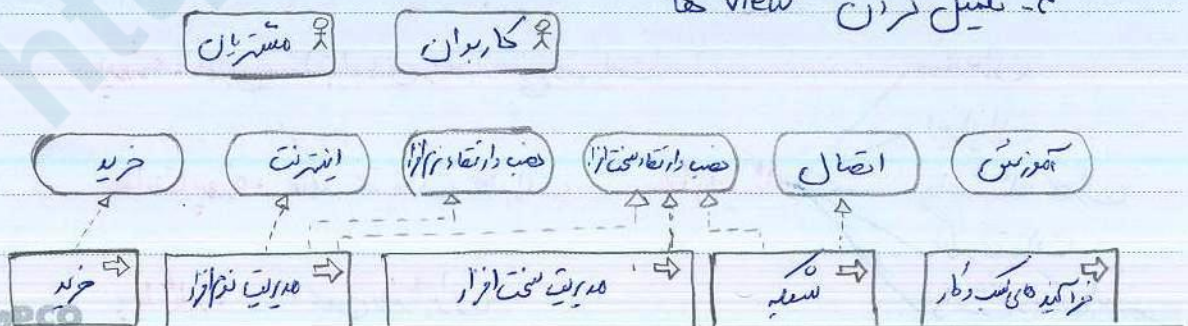 ۲- تکمیل کردن view ها
کاربران مشتریان
آموزش اتصال نصب و ارتقاء سخت افزار نصب و ارتقاء نرم افزار اینترنت خرید
فرآیندهای کسب و کار شبکه مدیریت سخت افزار مدیریت نرم افزار خرید